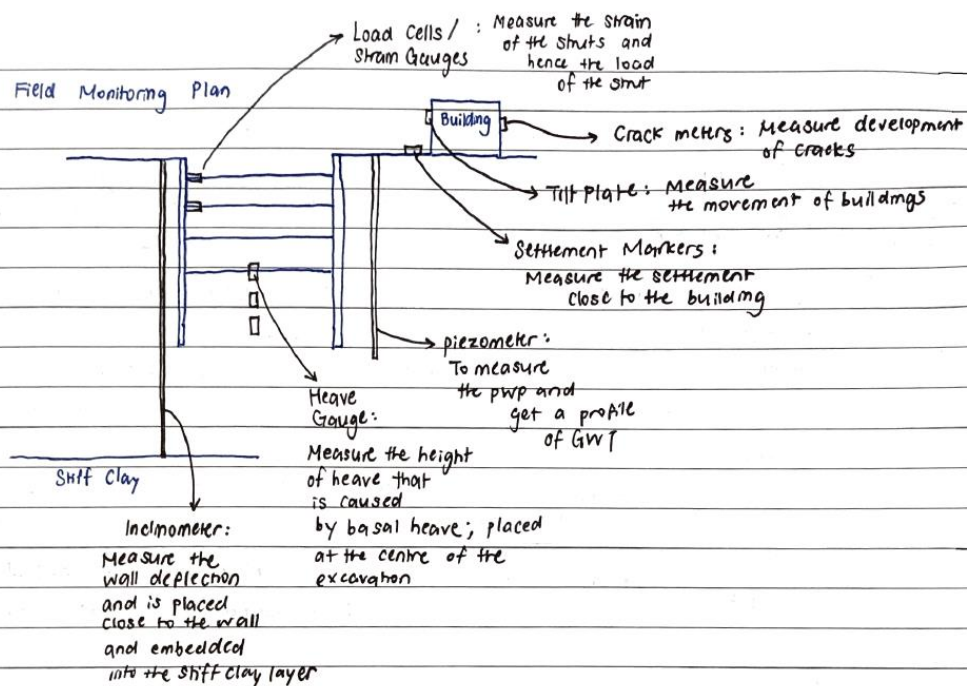 Field Monitoring Plan
Load Cells/
Strain Gauges
: Measure the strain
of the struts and
hence the load
of the strut
Building
Crack meters: Measure development
of cracks
Tilt Plate: Measure
the movement of buildings
Settlement Markers:
Measure the settlement
close to the building
piezometer:
To measure
the pwp and
get a profile
of GWT
Heave
Gauge:
Measure the height
of heave that
is caused
by basal heave; placed
at the centre of the
excavation
Stiff Clay
Inclinometer:
Measure the
wall deflection
and is placed
close to the wall
and embedded
into the stiff clay layer